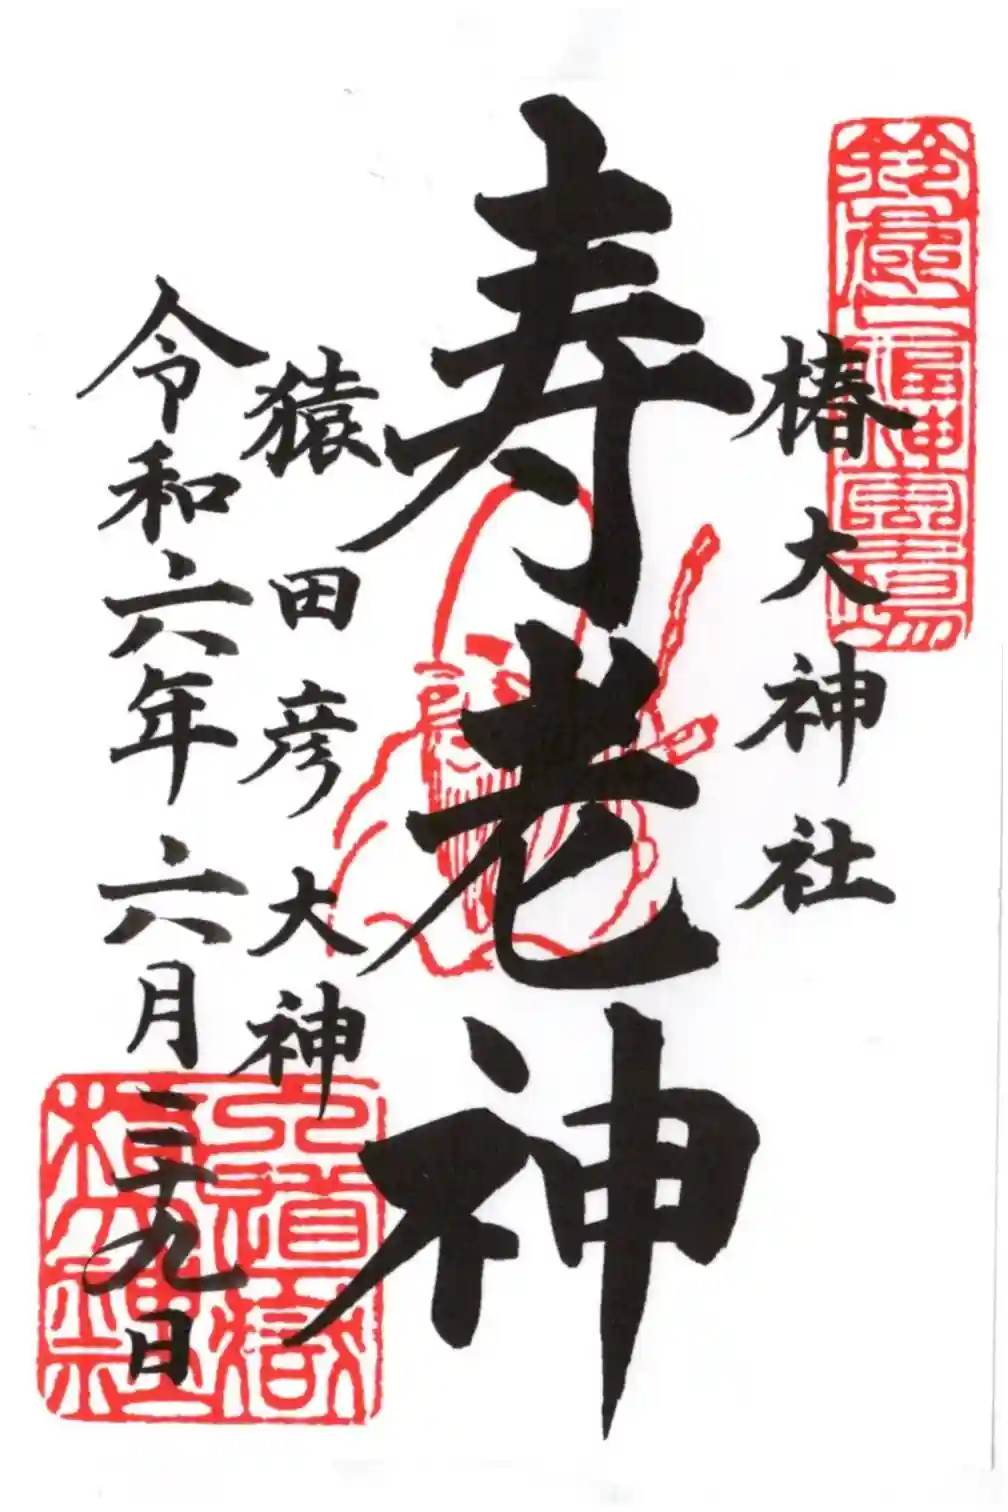 鈴鹿七福神霊場
椿大神社
寿老神
猿田彦大神
令和六年六月二十九日